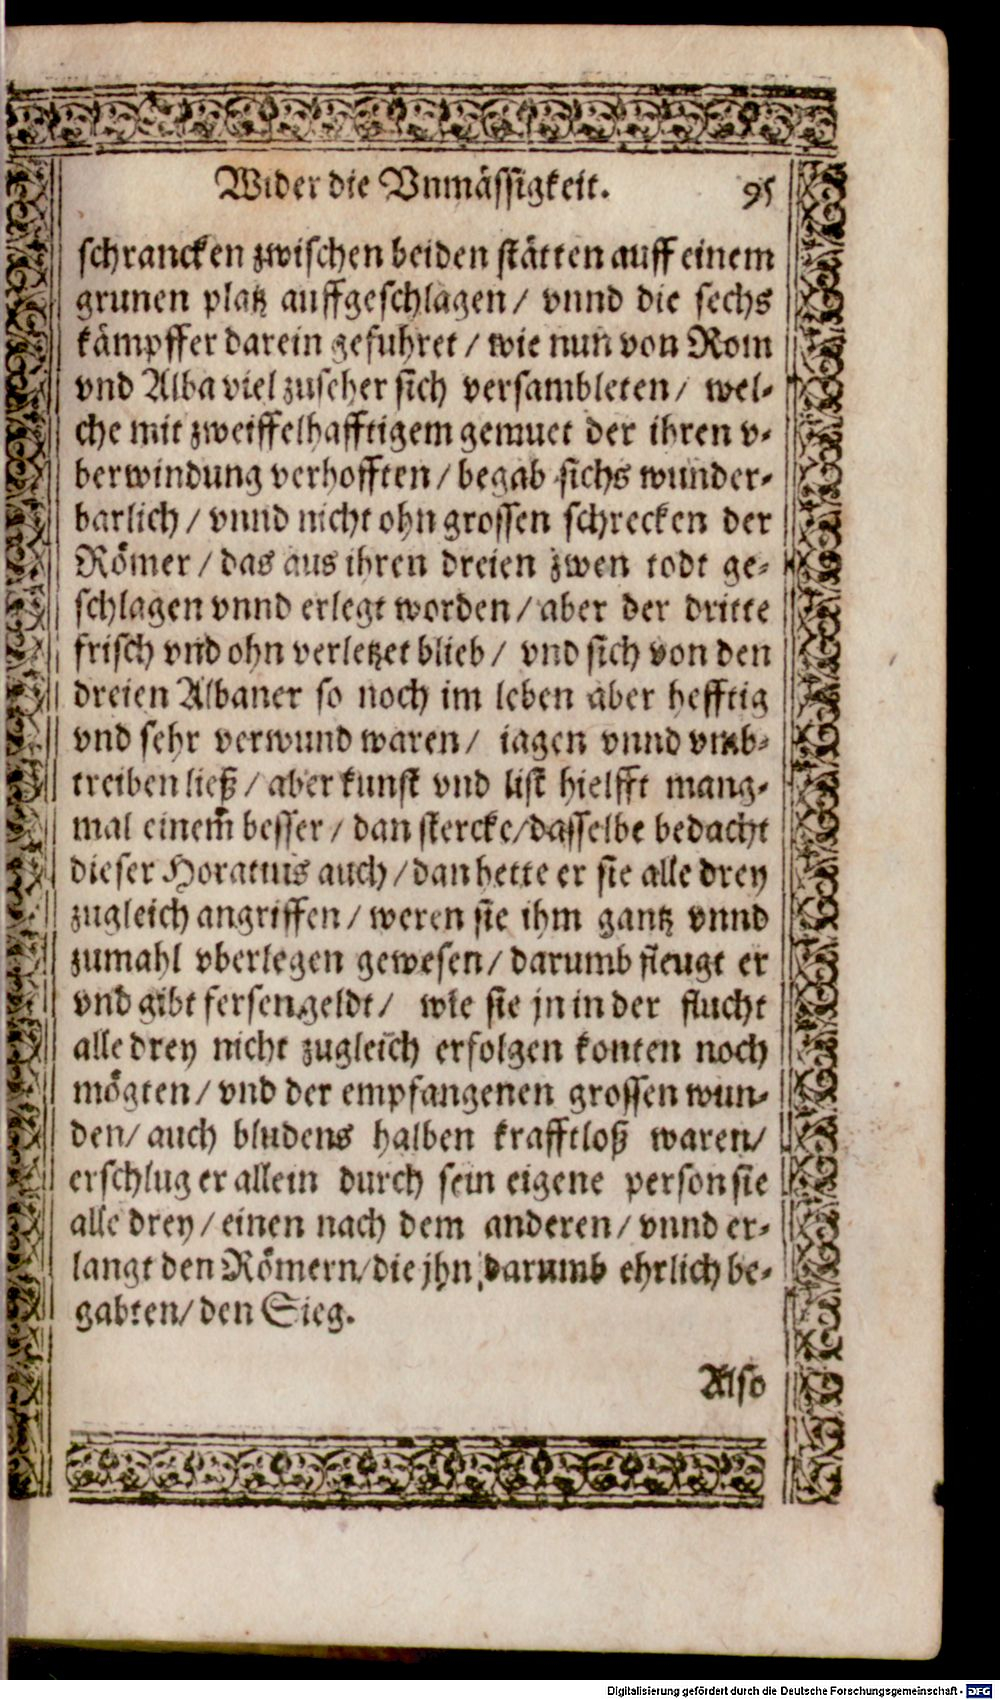 Wider die Vnmässigkeit. 95
schrancken zwischen beiden stätten auff einem
grunen platz auffgeschlagen / vnnd die sechs
kämpffer darein gefuhret / wie nun von Rom
vnd Alba viel zuseher sich versambleten / wel-
che mit zweiffelhafftigem gemuet der ihren v-
berwindung verhofften / begab sichs wunder-
barlich / vnnd nicht ohn grossen schrecken der
Römer / das aus ihren dreien zwen todt ge-
schlagen vnnd erlegt worden / aber der dritte
frisch vnd ohn verletzet blieb / vnd sich von den
dreien Albaner so noch im leben aber hefftig
vnd sehr verwund waren / iagen vnnd vmb-
treiben ließ / aber kunst vnd list hielfft mang-
mal einem̃ besser / dan stercke / dasselbe bedacht
dieser Horatius auch / dan hette er sie alle drey
zugleich angriffen / weren sie ihm gantz vnnd
zumahl vberlegen gewesen / darumb fleugt er
vnd gibt fersengeldt / wie sie jn in der flucht
alle drey nicht zugleich erfolgen konten noch
mögten / vnd der empfangenen grossen wun-
den / auch bludens halben krafftloß waren /
erschlug er allein durch sein eigene person sie
alle drey / einen nach dem anderen / vnnd er-
langt den Römern / die jhn darumb ehrlich be-
gabten / den Sieg.
Also
Digitalisierung gefördert durch die Deutsche Forschungsgemeinschaft - DFG